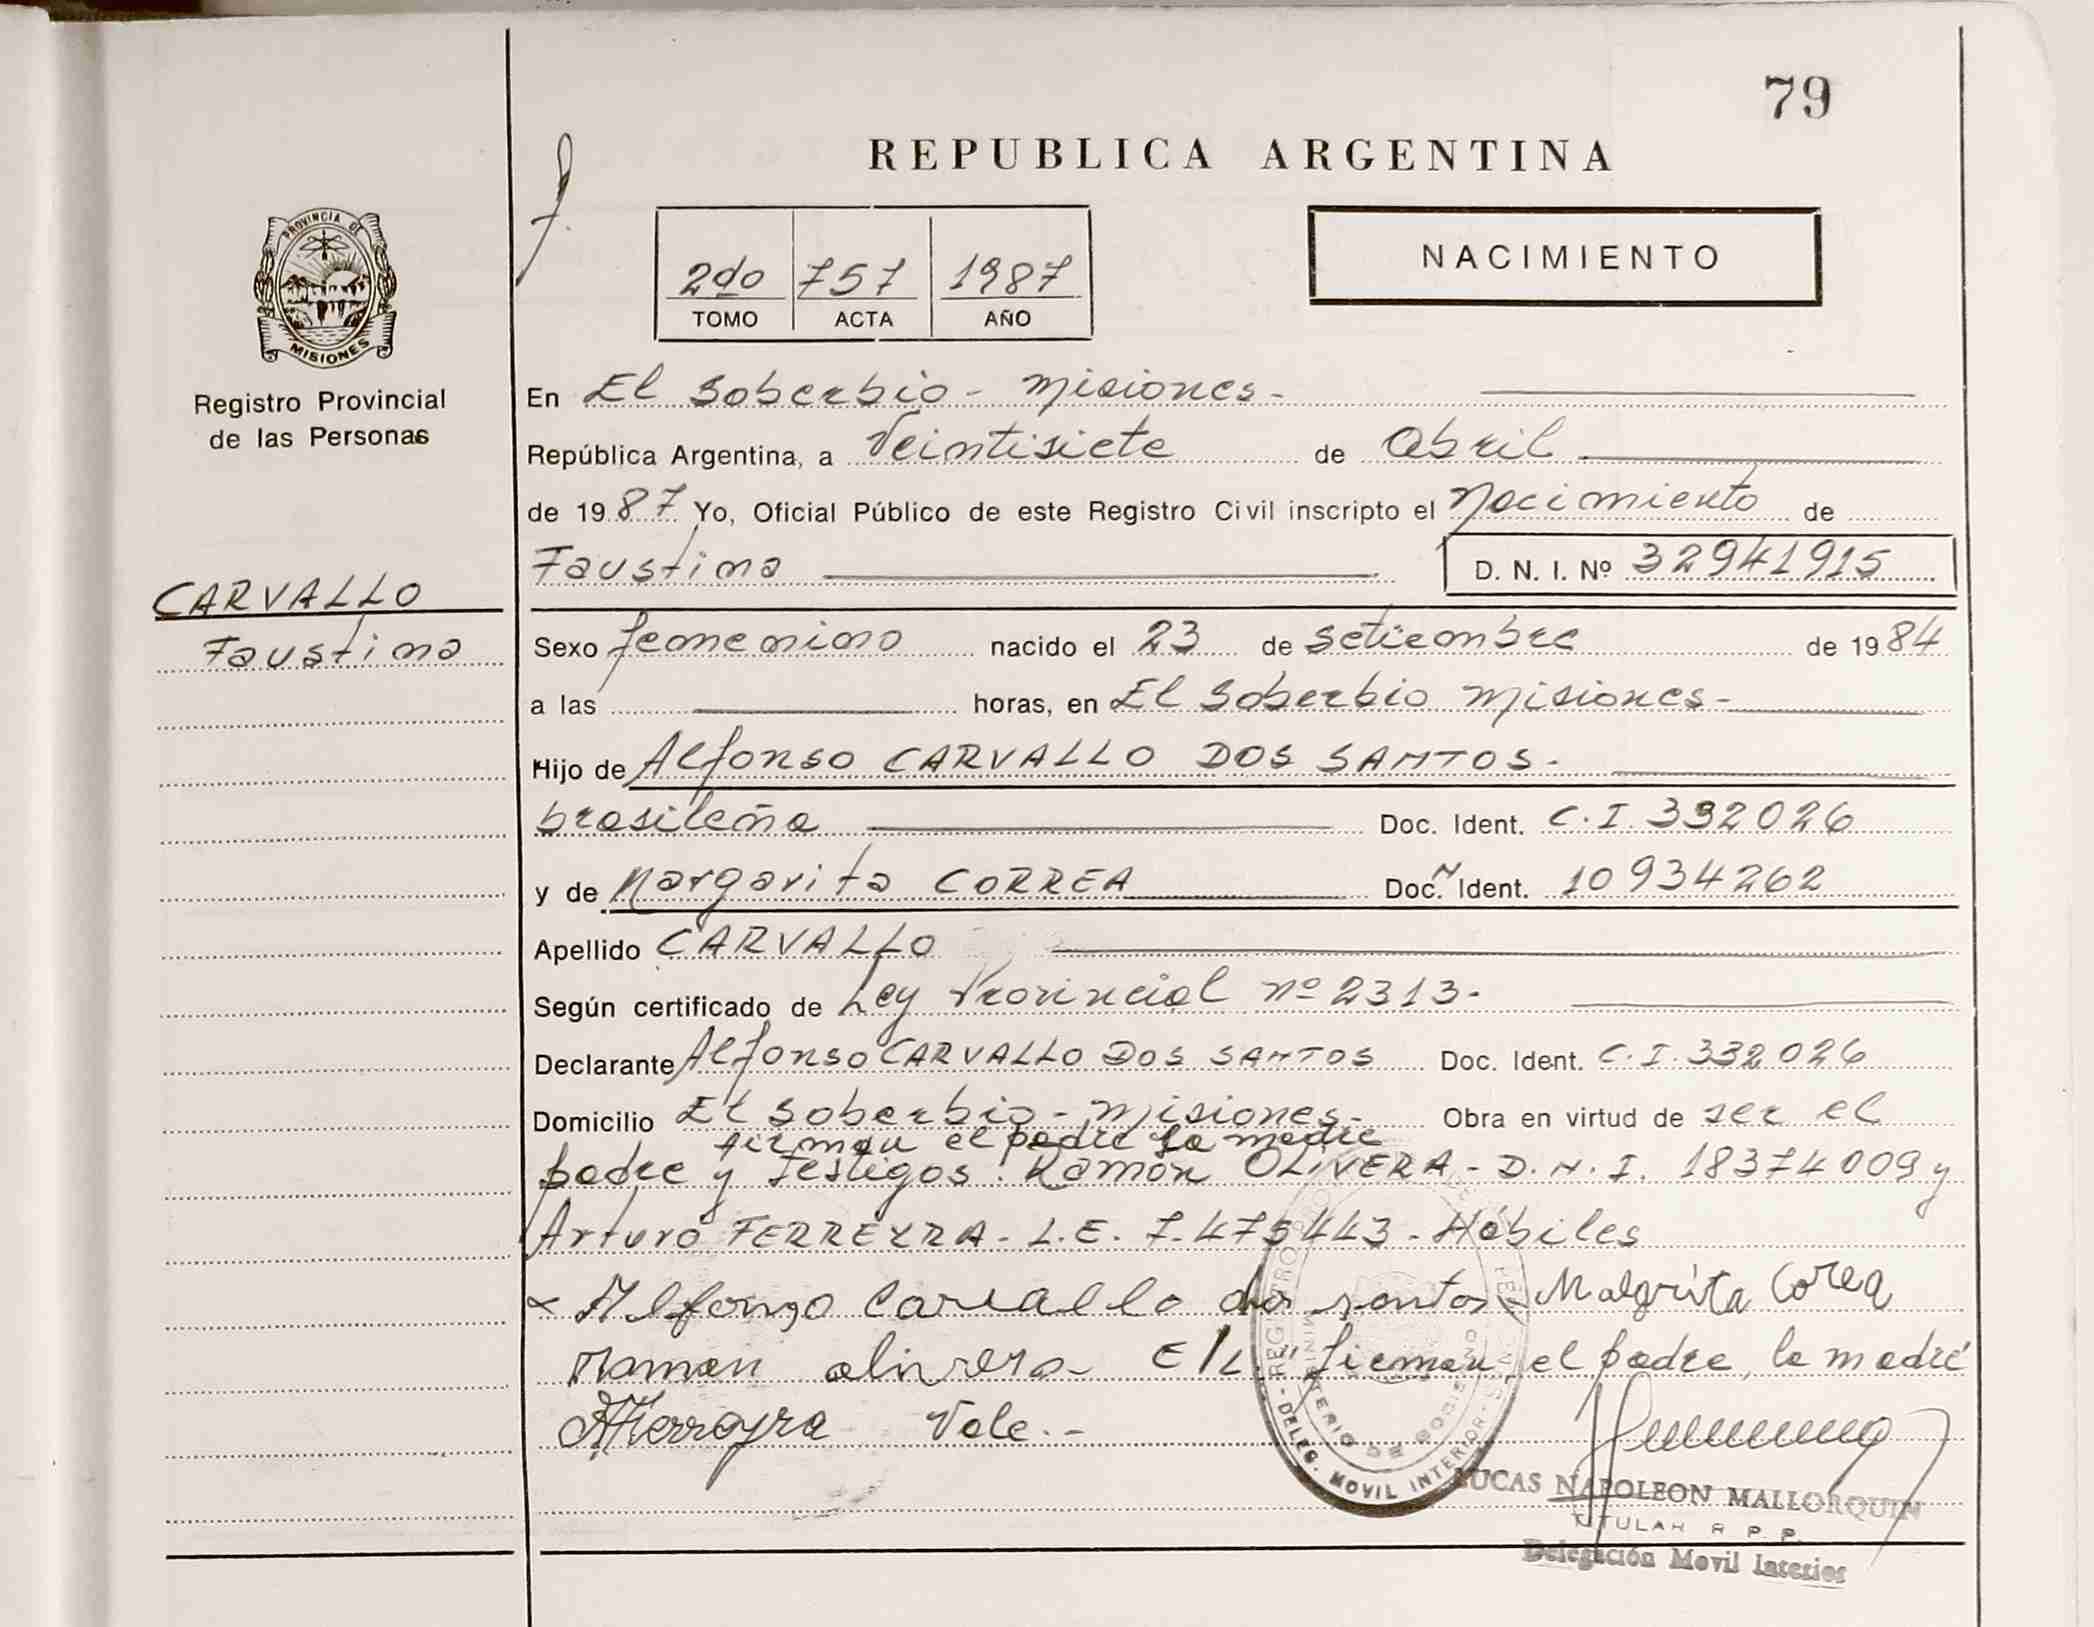 79
REPUBLICA ARGENTINA
PROVINCIA DE
MISIONES
Registro Provincial
de las Personas
2do 757 1987
TOMO ACTA AÑO
NACIMIENTO
En El Soberbio - Misiones -
República Argentina, a Veintisiete de Abril
de 1987 Yo, Oficial Público de este Registro Civil inscripto el Nacimiento de
Faustina D. N. I. Nº 32941915
CARVALLO
Faustina
Sexo femenino nacido el 23 de setiembre de 1984
a las horas, en El Soberbio Misiones -
Hijo de Alfonso CARVALLO DOS SANTOS -
brasileña Doc. Ident. C.I. 332026
y de Margarita CORREA Doc. N Ident. 10934262
Apellido CARVALLO
Según certificado de Ley Provincial nº 2313 -
Declarante Alfonso CARVALLO DOS SANTOS Doc. Ident. C.I. 332026
Domicilio El Soberbio - Misiones - Obra en virtud de ser el
firman el padre la madre
padre y testigos: Ramón OLIVERA - D.N.I. 18374009 y
Arturo FERREYRA - L.E. 7.475443 - Hábiles
x Alfonzo Carvallo dos santos Malgrita Corea
Ramon olivera E/L "firman el padre, la madre
AFerreyra Vale. -
REGISTRO
MINISTERIO DE GOBIERNO
DELEG. MOVIL INTERIOR
LUCAS NAPOLEON MALLORQUIN
TITULAR R. P. P.
Delegación Movil Interior